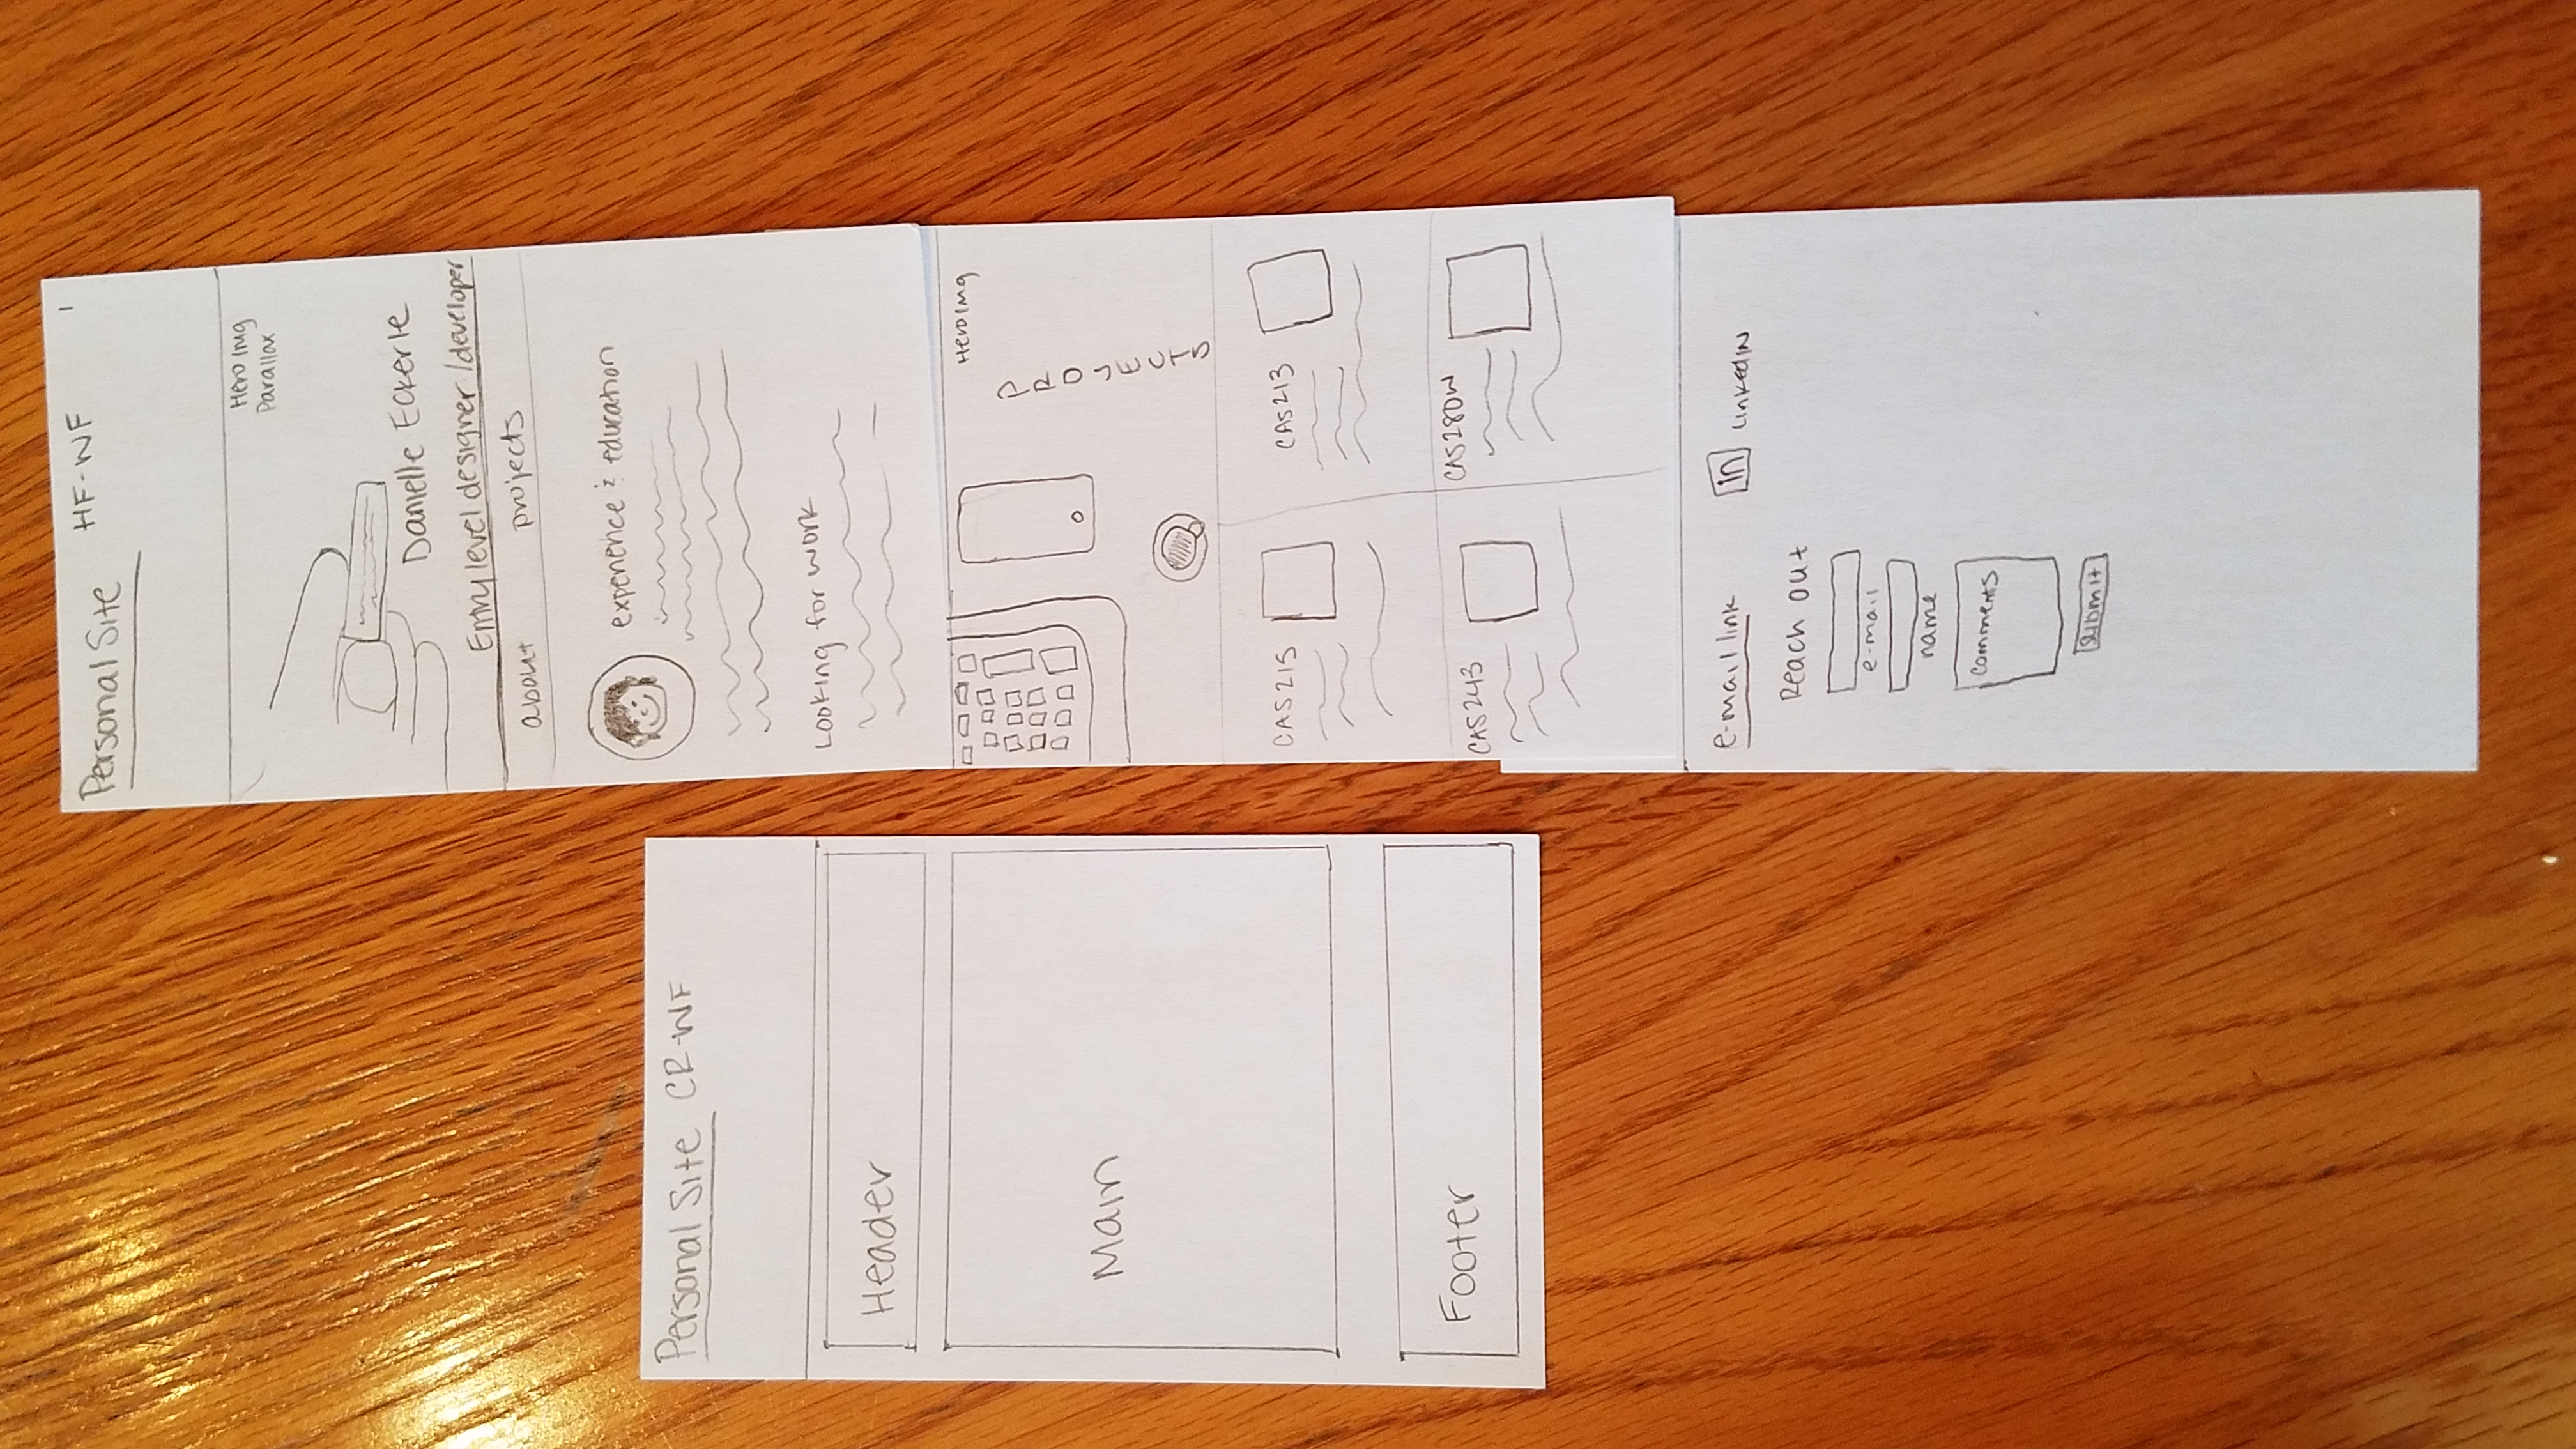 Personal Site CR-WF
Header
Main
Footer
Personal Site HF-WF 1
Hero Img
Parallax
Danielle Eckerle
Entry level designer / developer
about projects
experience & education
Looking for work
Hero Img
PROJECTS
CAS215 CAS213
CAS243 CAS280W
e-mail link in LinkedIN
Reach out
e-mail
name
comments
submit